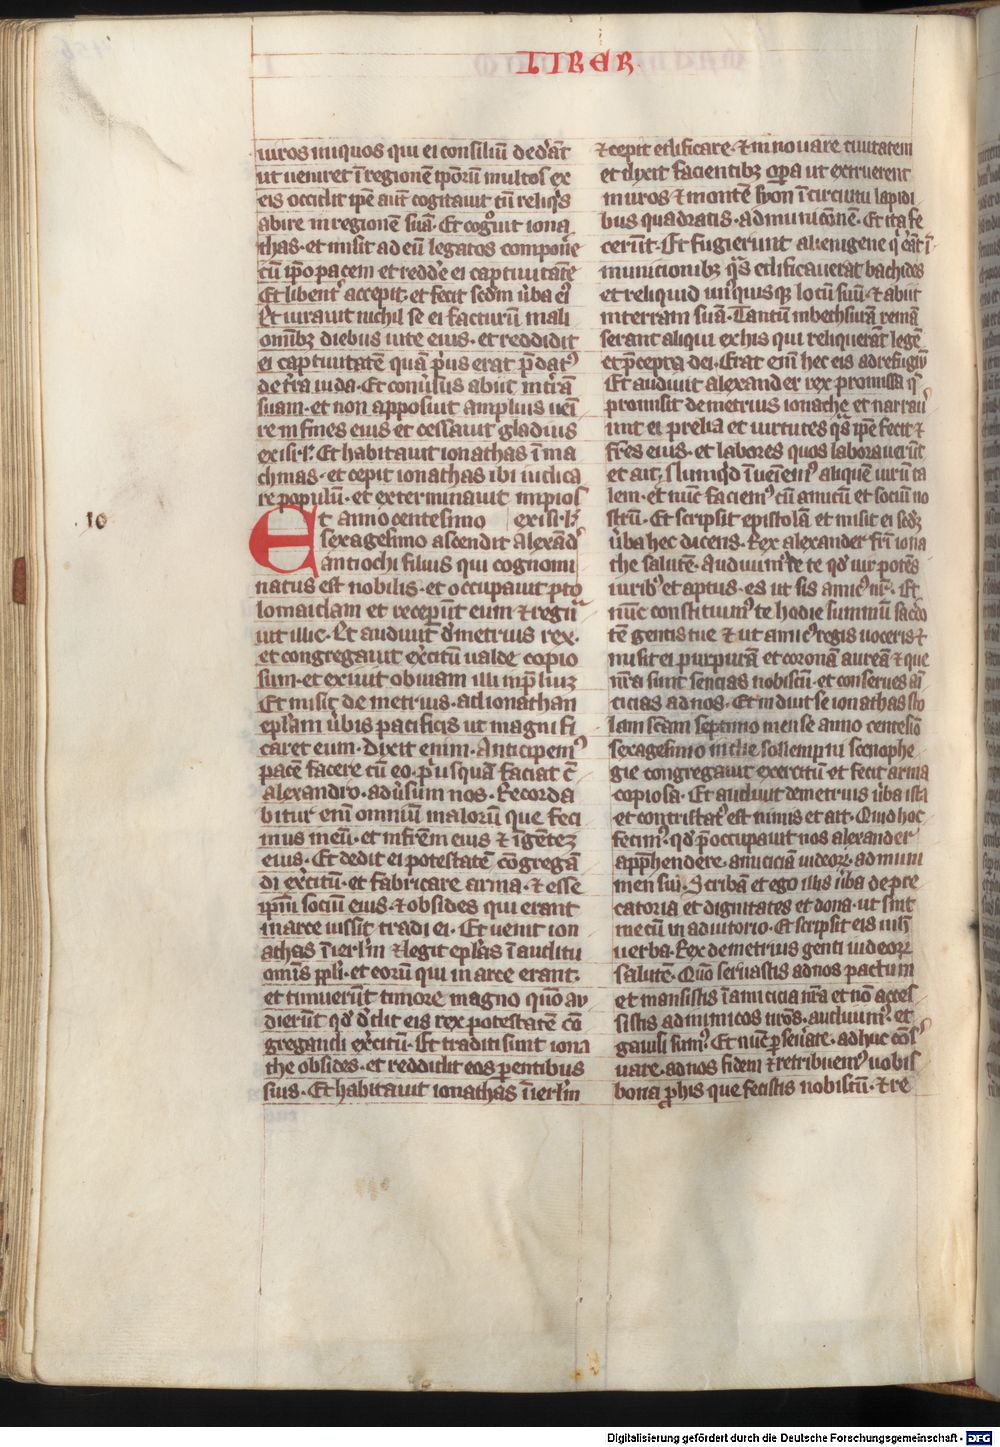 LIBER
uiros iniquos qui ei consiliū dedāt
ut ueniret ī regionē ip̄orū multos ex
eis occidit ip̄e aut̄ cogitauit cū reliq̄s
abire in regionē suā. Et cog̾uit iona
thas. et misit ad eū legatos componēe
cū ip̄o pacem et reddēe ei captiuitatē
Et libent̾ accepit. et fecit scd̄m u̾ba eiꝰ
Et iurauit nichil se ei facturū mali
omībꝫ diebus uite eius. et reddidit
ei captiuitatē quā pⁱus erat p̄datꝰ
de tr̄a iuda. Et conu̾sus abiit in tr̄ā
suam. et non apposuit amplius uēi
re in fines eius et cessauit gladius
ex isr̄l. Et habitauit ionathas ī ma
chmas. et cepit ionathas ibi iudica
re populū. et exterminauit impios
10
Et anno centesimo ex isr̄l.
sexagesimo ascendit alexād̾
antiochi filius qui cognomi
natus est nobilis. et occupauit pto
lomaidam et recep̾unt eum ⁊ regna
uit illic. Et audiuit d̾metrius rex.
et congregauit ex̾citū ualde copio
sum. et exiuit obuiam illi in p̄liuꝫ
Et misit demetrius. ad ionathan
ep̄lam u̾bis pacificis ut magnifi
caret eum. dixit enim. Anticipemꝰ
pacē facere cū eo. pⁱusquā faciat c̄
alexandro. adu̾sum nos. Recorda
bitur enī omniū malorū que feci
mus in eū. et in fr̄em eius ⁊ īgenteꝫ
eius. Et dedit ei potestatē cōgregā
di ex̾citū. et fabricare arma. ⁊ esse
ip̄m sociū eius. ⁊ obsides qui erant
in arce iussit tradi ei. Et uenit ion
athas ī ierl̄m ⁊ legit ep̄las ī auditu
omīs pp̄li. et eorū qui in arce erant.
et timuerūt timore magno quō au
dierūt qd̾ d̾dit eis rex potestatē cō
gregandi ex̾citū. Et traditi sunt iona
the obsides. et reddidit eos parentibus
suis. Et habitauit ionathas ī ierl̄m
⁊ cepit edificare. ⁊ innouare ciuitatem
et dixit facientibꝫ opera ut extruerent
muros ⁊ montē syon ī circuitu lapidi
bus quadratis. ad municōnē. Et ita fe
cerūt. Et fugierunt alienigene q̾ ēāt ī
municionibꝫ q̄s edificauerat bachides
et reliquid unꝰquisqꝫ locū suū. ⁊ abiit
in terram suā. Tantū in bethsurā remā
serant aliqui ex his qui reliquerāt legē
et p̄cepta dei. Erat enī hec eis ad refugiū
Et audiuit alexander rex promissa q̄
promisit demetrius ionathe et narraū
unt ei prelia et uirtutes q̄s ip̄e fecit ⁊
fr̄es eius. et labores quos laborauerūt
et ait. Numq̾d īueniemꝰ aliquē uirū ta
lem. et nūc faciemꝰ eū amicū et sociū no
strū. Et scripsit epistolā et misit ei scd̄ꝫ
u̾ba hec dicens. Rex alexander fr̄i iona
the salutē. Audiuimꝰ de te qd̾ uir potēs
uiribꝰ et aptus. es ut sis amicꝰ nr̄. Et
nūc constituimꝰ te hodie summū sac̾do
tē gentis tue ⁊ ut amicꝰ regis uoceris ⁊
misit ei purpurā et coronā aureā ⁊ que
nr̄a sunt sencias nobiscū. et conserues am̄
ticias ad nos. Et induit se ionathas sto
lam scām septimo mense anno centesīō
sexagesimo in die sollempni scenophe
gie congregauit exercitū et fecit arma
copiosa. Et audiuit demetrius u̾ba ista
et contristatꝰ est nimis et ait. Quid hoc
fecimꝰ. qd̾ p̄occupauit nos alexander
app̄hendere. amiciciā iudeoꝝ. ad muni
men sui. Scribā et ego illis u̾ba depre
catoria et dignitates et dona. ut sint
mecū in adiutorio. Et scripsit eis in h̄
uerba. Rex demetrius genti iudeoꝝ
salutē. Quō seruastis ad nos pactum
et mansistis ī amicicia nr̄a et nō acces
sistis ad inimicos nr̄os. audiuimꝰ. et
gauisi sumꝰ. Et nūc perseu̾ate. adhuc cōs̾
uare. ad nos fidem ⁊ retribuemꝰ uobis
bona pro his que fecistis nobiscū. ⁊ re
Digitalisierung gefördert durch die Deutsche Forschungsgemeinschaft - DFG